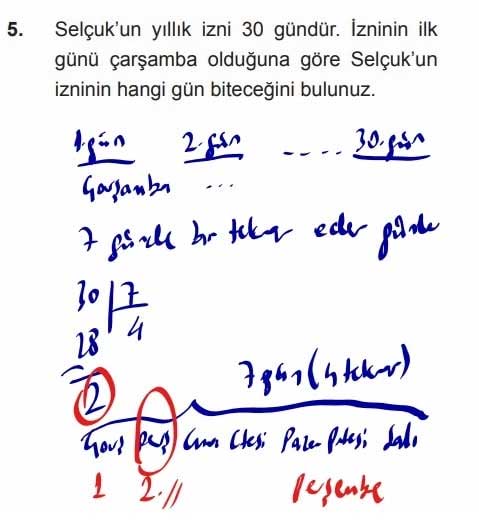 5. Selçuk'un yıllık izni 30 gündür. İzninin ilk
günü çarşamba olduğuna göre Selçuk'un
izninin hangi gün biteceğini bulunuz.
1.gün 2.gün .... 30.gün
Çarşamba ...
7 günde bir tekrar eder günler
30 7
28 4
2
7 gün (4 tekrar)
Çarş Perş Cum Ctesi Pazar Ptesi Salı
1 2. // Perşembe